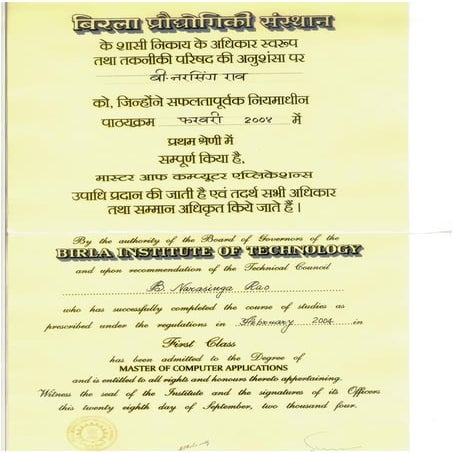 बिरला प्रौद्योगिकी संस्थान
के शासी निकाय के अधिकार स्वरूप
तथा तकनीकी परिषद की अनुशंसा पर
बी. नरसिंग राव
को, जिन्होंने सफलतापूर्वक नियमाधीन
पाठ्यक्रम फरवरी २००४ में
प्रथम श्रेणी में
सम्पूर्ण किया है,
मास्टर आफ कम्प्यूटर एप्लिकेशन्स
उपाधि प्रदान की जाती है एवं तदर्थ सभी अधिकार
तथा सम्मान अधिकृत किये जाते हैं ।
By the authority of the Board of Governors of the
BIRLA INSTITUTE OF TECHNOLOGY
and upon recommendation of the Technical Council
B. Narasinga Rao
who has successfully completed the course of studies as
prescribed under the regulations in February 2004 in
First Class
has been admitted to the Degree of
MASTER OF COMPUTER APPLICATIONS
and is entitled to all rights and honours thereto appertaining.
Witness the seal of the Institute and the signatures of its Officers
this twenty eighth day of September, two thousand four.